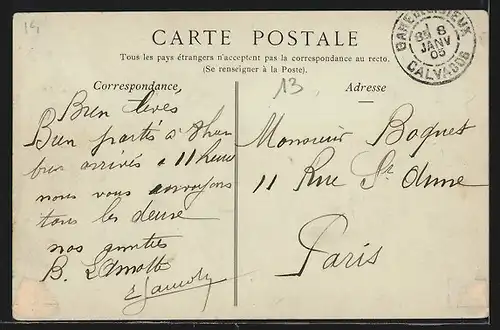 CARTE POSTALE
Tous les pays étrangers n'acceptent pas la correspondance au recto.
(Se renseigner à la Poste).
Correspondance
Adresse
GARE DE LISIEUX
8
JANV
05
CALVADOS
13
Bien
Bien partis
bien arrivés a 11 heures
nous vous envoyons
tous les deux
nos amitiés
B. Lamotte
Monsieur Boquet
11 Rue Ste Anne
Paris